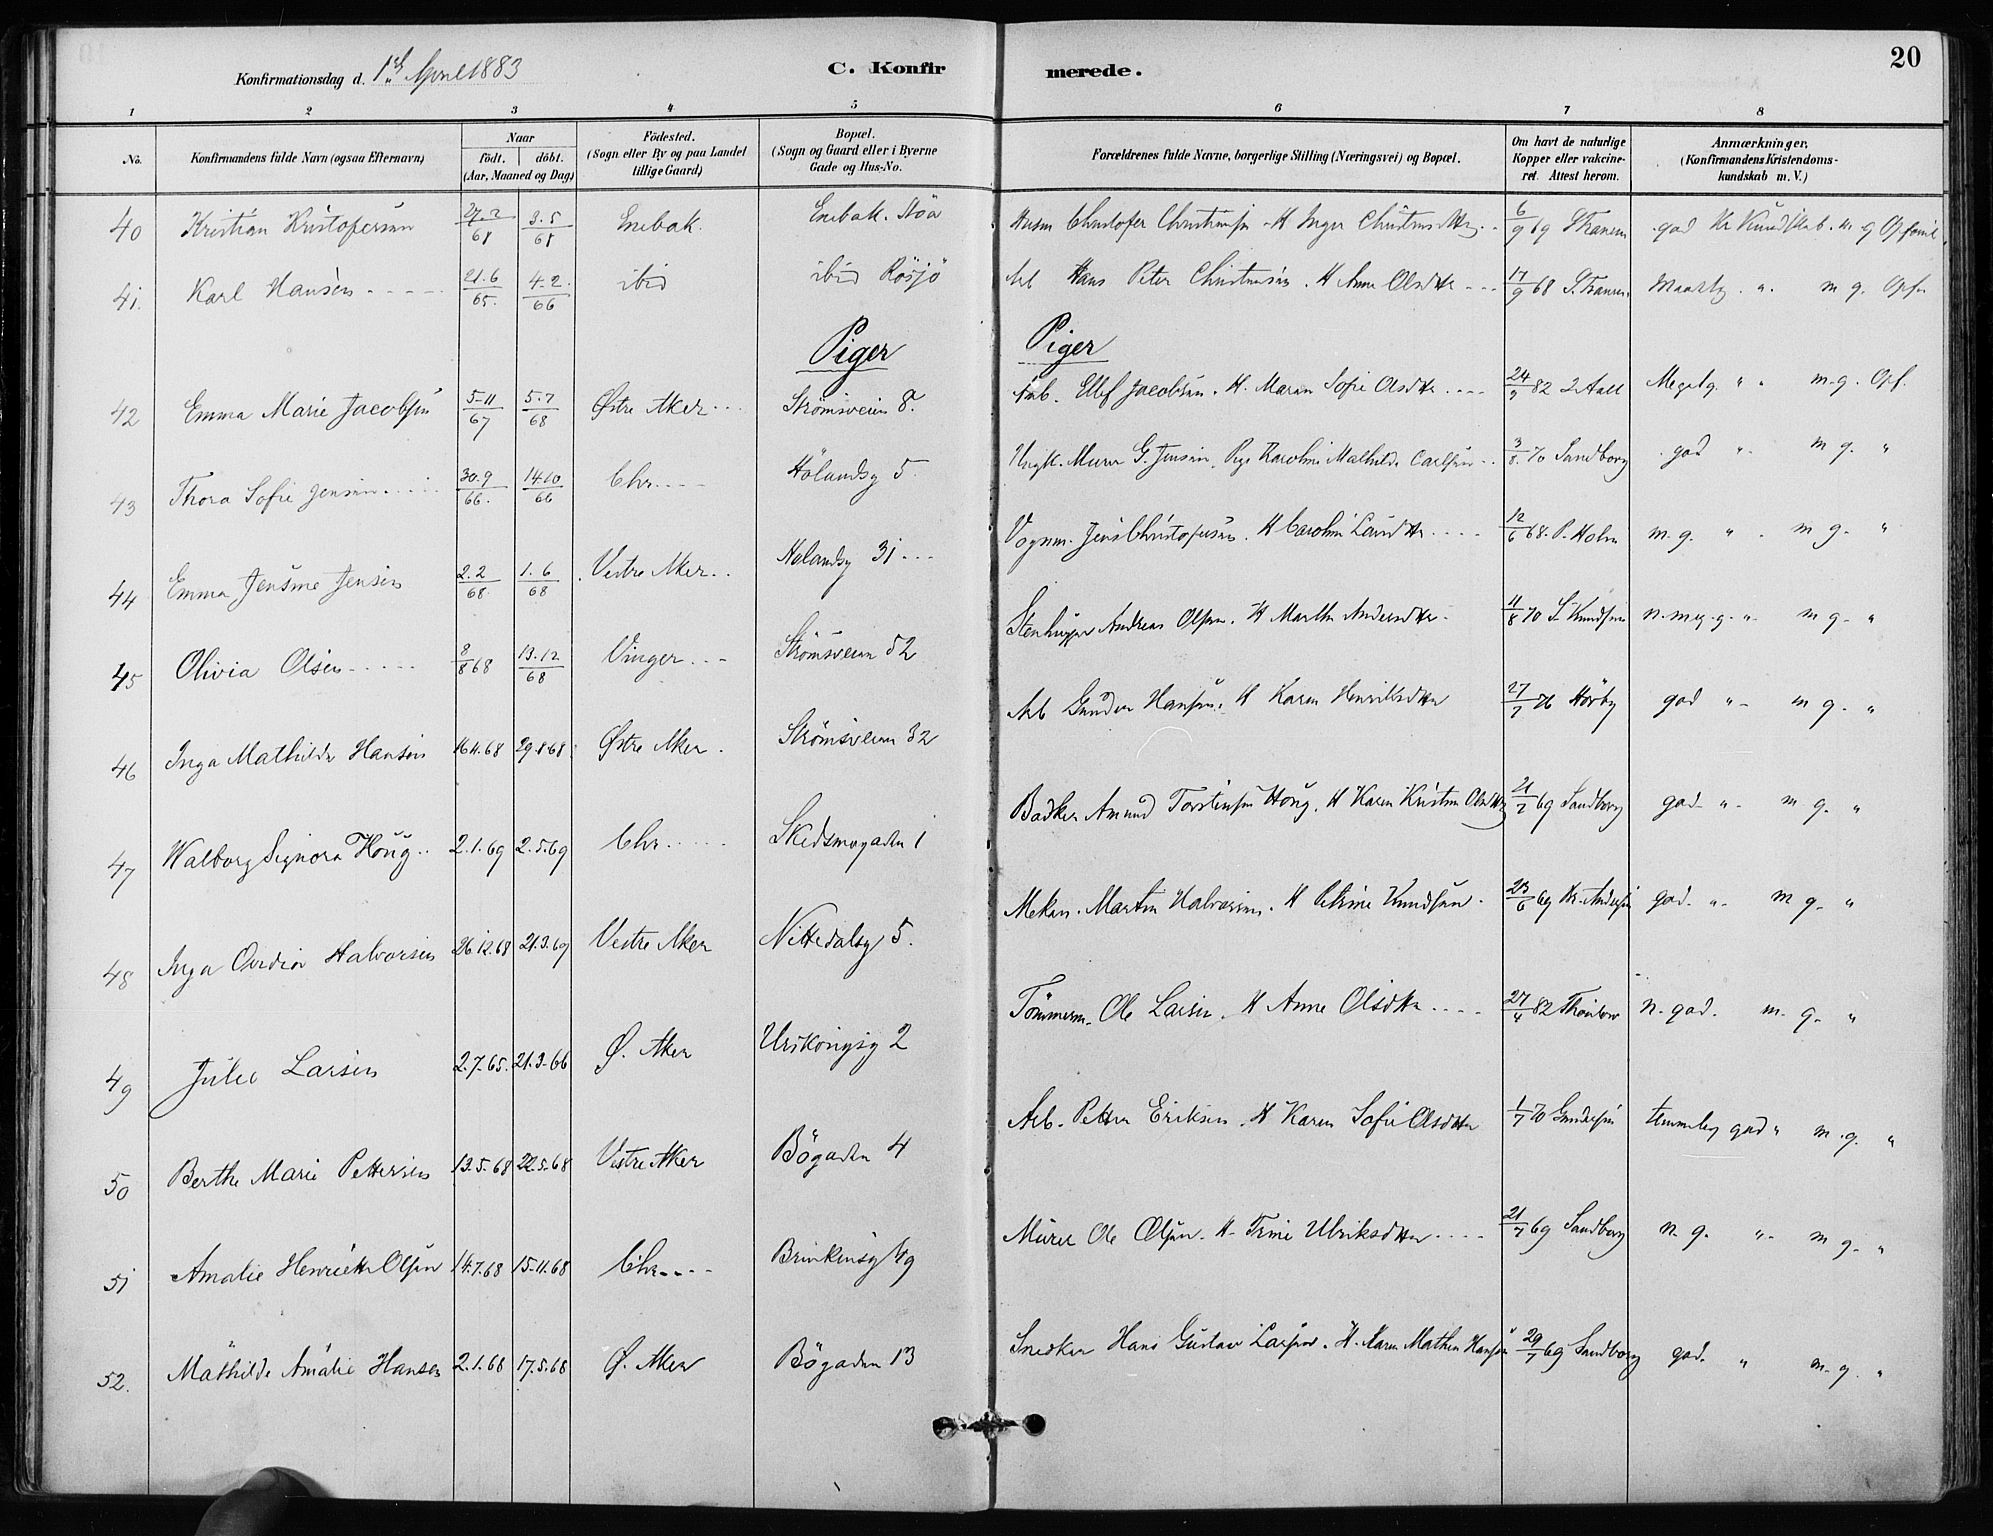 Konfirmationsdag d. 1ste April 1883 C. Konfirmerede. 20
1 2 3 4 5 6 7 8
No. Konfirmandens fulde Navn (ogsaa Efternavn) Naar født. døbt. (Aar, Maaned og Dag) Fødested. (Sogn eller By og paa Landet tillige Gaard) Bopæl. (Sogn og Gaard eller i Byerne Gade og Hus-No. Forældrenes fulde Navne, borgerlige Stilling (Næringsvei) og Bopæl. Om havt de naturlige Kopper eller vakcineret. Attest herom. Anmærkninger. (Konfirmandens Kristendomskundskab m. V.)
40 Kristian Kristofersen 27.2/68 3.5/68 Enebak. Enebak. Stöa Husm Christofer Christensen H Inger Christensdttr 6/9 69 Thranem god Kr Kundskab. m g Opførsel
41. Karl Hansen 21.6/65. 4.2./66 ibid ibid Rösjö Arb Hans Peter Christensen. H Anne Olsdttr 17/9 68 S. Thranem. Maatelig. " m g. Opf
Piger Piger
42 Emma Marie Jacobsen 5-11/67 5.7/68 Østre Aker Strømsveien 8. Arb. Ellef Jacobsen. H. Maren Sofie Olsdttr 24/2 82 Aall Megetg. " " m.g. Opf.
43 Thora Sofie Jensen 30.9/66. 14.10/66 Chr. Hölandsg 5 Ungk. Murer G. Jensen, Pige Karoline Mathilde Carlsen 3/8. 70 Sandborg god " m g. "
44 Emma Jensine Jensen 2.2/68 1.6/68 Vestre Aker Hölandsg 31 Vognm. Jens Christofersen. H Caroline Larsdttr 12/6 68. P. Holm m. g. " m g. "
45 Olivia Olsen 8/8 68 13.12/68 Vinger Strømsveien 52 Stenhugger Andreas Olsen. H Marthe Andersdttr. 11/8 70 S Knudsen n. meg. g. " m g. "
46 Inga Mathilde Hansen 16.4.68 29.8.68 Østre Aker. Strømsveien 32 Arb Gunder Hansen. H Karen Henriksdttr 27/7 76 Hörby god " m g. "
47 Walborg Signora Houg 2.1.69 2.5.69 Chr. Skedsmogaden 1 Bødker Amund Torstensen Houg. H Karen Kristine Olsdttr 21/7 69 Sandborg god " m g. "
48 Inga Halvorsen 26.12.68 21.3.69 Vestre Aker Nittedalsg 5. Mekan. Martin Halvorsen. H Petrine Knudsen. 23/6 69 Kr. Andersen god " m g. "
49 Julie Larsen 2.7.65. 21.3.66 Ø. Aker Urskougsg 2 Tömmerm. Ole Larsen. H Anne Olsdttr 27/4 82 n. god. m. g. "
50 Berthe Marie Pettersen 13.5.68 22.5.68 Vestre Aker Bögaden 4 Arb. Petter Eriksen. H Karen Sofie Olsdttr 1/7 70 Gundersen temmelig god " m. g. "
51 Amalie Henriette Olsen 14.7.68 15.11.68 Chr. Brinkensg 49 Murer Ole Olsen. H. Trine Ulriksdttr 21/7 69 Sandborg n. g. " m g. "
52. Mathilde Amalie Hansen 2.1.68 17.5.68 Ø. Aker Bögaden 13 Snedker Hans Gustav Larsen. H. Karen Mathea Hansen 29/7 69 Sandborg god. " m. g. "